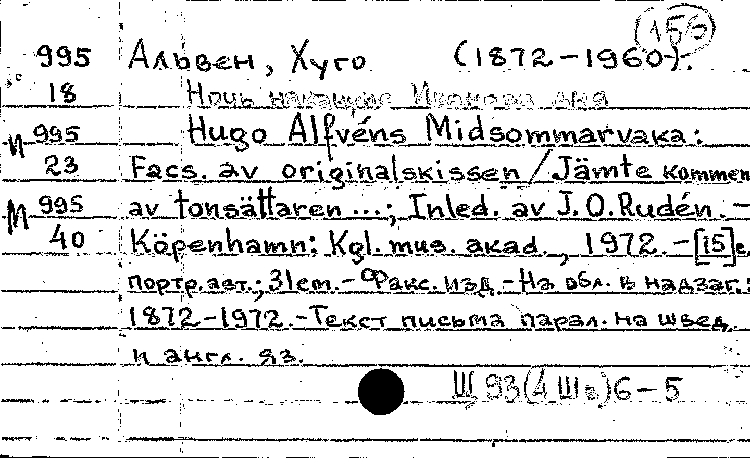 (156)
995 Альвен, Хуго (1872-1960).
18 Ночь накануне Иванова дня
и 995 Hugo Alfvéns Midsommarvaka:
23 Facs. av originalskissen / Jämte kommen
М 995 av tonsättaren ...; Inled. av J.O.Rudén. -
40 Köpenhamn: Kgl. mus. akad., 1972. - [15] с.
портр. авт.; 31 cm. - Факс. изд. - На обл. в надзаг.:
1872-1972. - Текст письма парал. на швед.
и англ. яз.
Щ 93(4Шв)6-5